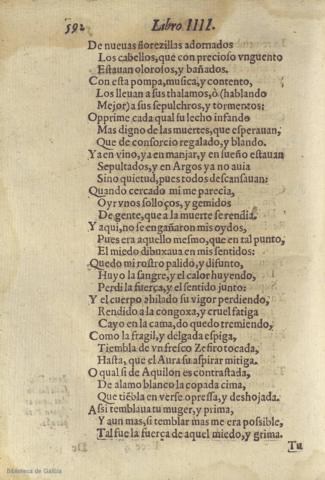 592
Libro IIII.
De nueuas florezillas adornados
Los cabellos, que con precioso vnguento
Estauan olorosos, y bañados.
Con esta pompa, musica, y contento,
Los lleuan a sus thalamos, ò (hablando
Mejor) a sus sepulchros, y tormentos:
Opprime cada qual su lecho infando
Mas digno de las muertes, que esperauan,
Que de consorcio regalado, y blando.
Ya en vino, ya en manjar, y en sueño estauan
Sepultados, y en Argos ya no auia
Sino quietud, pues todos descansauan:
Quando cercado mi me parecia,
Oyr vnos solloços, y gemidos
De gente, que a la muerte se rendia.
Y aqui, no se engañaron mis oydos,
Pues era aquello mesmo, que en tal punto,
El miedo dibuxaua en mis sentidos:
Quedo mi rostro palido, y difunto,
Huyo la sangre, y el calor huyendo,
Perdi la fuerça, y el sentido junto:
Y el cuerpo ahilado su vigor perdiendo,
Rendido a la congoxa, y cruel fatiga
Cayo en la cama, do quedo tremiendo,
Como la fragil, y delgada espiga,
Tiembla de vn fresco Zefiro tocada,
Hasta, que el Aura su aspirar mitiga.
O qual si de Aquilon es contrastada,
De alamo blanco la copada cima,
Que tiẽbla en verse opressa, y deshojada.
Assi temblaua tu muger, y prima,
Y aun mas, si temblar mas me era possible,
Tal fue la fuerça de aquel miedo, y grima.
Tu
Biblioteca de Galicia